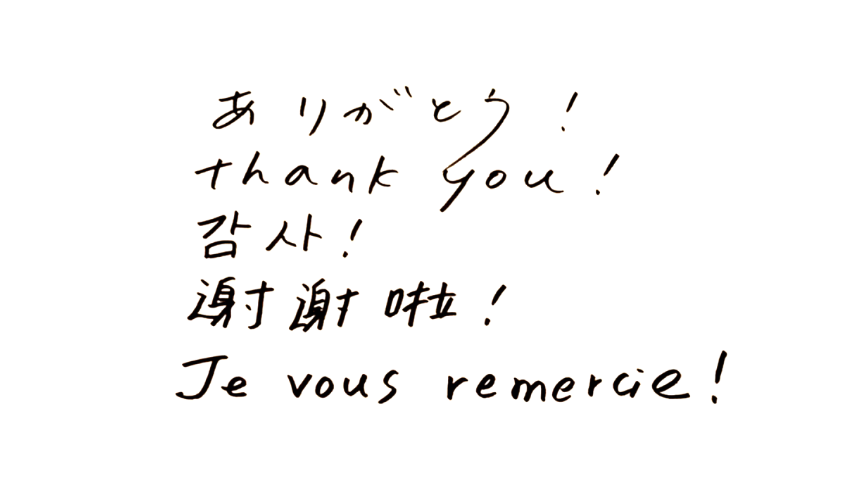 ありがとう!
thank you!
감사!
谢谢啦!
Je vous remercie!